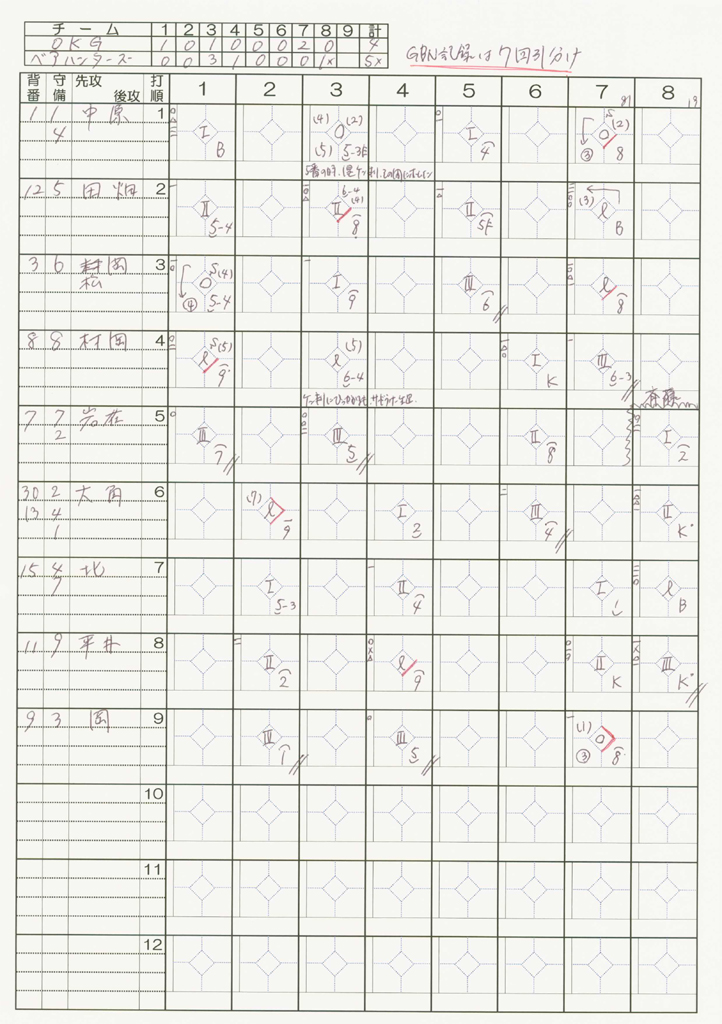 チーム 1 2 3 4 5 6 7 8 9 計
OKG 1 0 1 0 0 0 2 0 4
ベアハンターズ 0 0 3 1 0 0 0 1x 5x
GBN記録は7回引分け
背番 守備 先攻 後攻 打順 1 2 3 4 5 6 7 8
1 1 中原 1
4
I B
0 (4) (2) (5) 5-3E
I 4
0 S (2) ③ 8
12 5 田畑 2
II 5-4
II 6-4 (4) 8
II 5E
(3) l B
3 6 村岡 3
松
0 S(4) ④ 5-4
I 9
III 6
l 8
8 8 村岡 4
l S(5) 9
l (5) 6-4
I K
III 6-3
斎藤
7 7 岩在 5
2
III 7
III 5
II 8
I 2
30 2 大角 6
13 4
1
(7) l 9
I 2
III 4
II K
15 4 北 7
7
I 5-3
II 4
I 1
l B
11 9 平井 8
II 2
l 9
II K
III K
9 3 岡 9
III 1
III 5
(1) 0 ③ 8
10
11
12